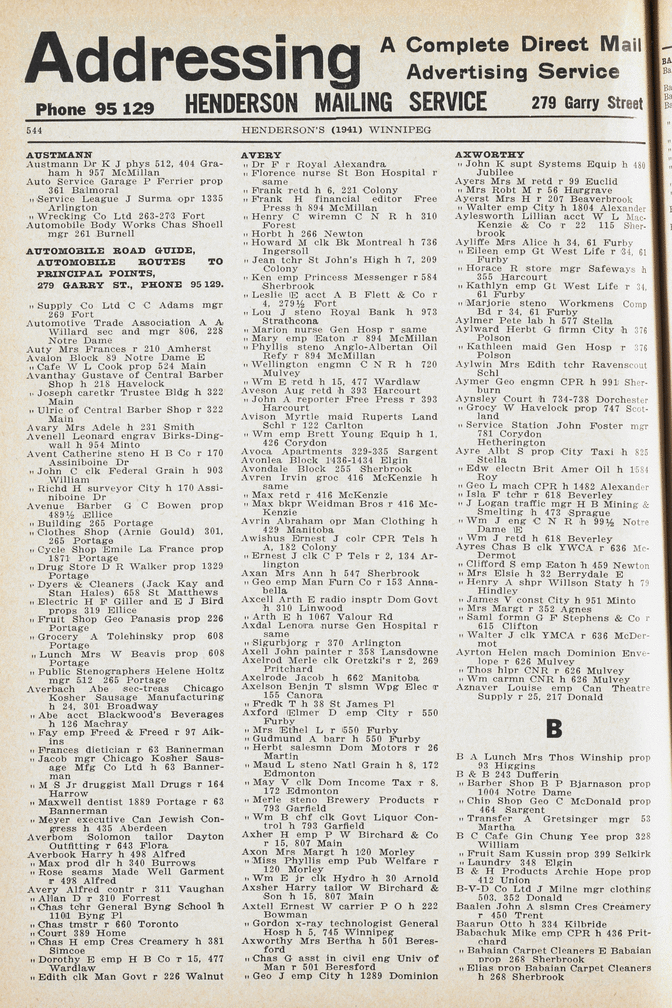 Addressing A Complete Direct Mail
Advertising Service
Phone 95 129 HENDERSON MAILING SERVICE 279 Garry Street
544 HENDERSON'S (1941) WINNIPEG
AUSTMANN
Austmann Dr K J phys 512, 404 Gra-
ham h 957 McMillan
Auto Service Garage P Ferrier prop
361 Balmoral
„ Service League J Surma opr 1335
Arlington
„ Wrecking Co Ltd 263-273 Fort
Automobile Body Works Chas Shoell
mgr 261 Burnell
AUTOMOBILE ROAD GUIDE,
AUTOMOBILE ROUTES TO
PRINCIPAL POINTS,
279 GARRY ST., PHONE 95 129.
„ Supply Co Ltd C C Adams mgr
269 Fort
Automotive Trade Association A A
Willard sec and mgr 806, 228
Notre Dame
Auty Mrs Frances r 210 Amherst
Avalon Block 89 Notre Dame E
„ Cafe W L Cook prop 524 Main
Avanthay Gustave of Central Barber
Shop h 218 Havelock
„ Joseph caretkr Trustee Bldg h 322
Main
„ Ulric of Central Barber Shop r 322
Main
Avary Mrs Adele h 231 Smith
Avenell Leonard engrav Birks-Ding-
wall h 954 Minto
Avent Catherine steno H B Co r 170
Assiniboine Dr
„ John C clk Federal Grain h 903
William
„ Richd H surveyor City h 170 Assi-
niboine Dr
Avenue Barber G C Bowen prop
489½ Ellice
„ Building 265 Portage
„ Clothes Shop (Arnie Gould) 301,
265 Portage
„ Cycle Shop Emile La France prop
1871 Portage
„ Drug Store D R Walker prop 1329
Portage
„ Dyers & Cleaners (Jack Kay and
Stan Hales) 658 St Matthews
„ Electric H F Giller and E J Bird
props 319 Ellice
„ Fruit Shop Geo Panasis prop 226
Portage
„ Grocery A Tolehinsky prop 608
Portage
„ Lunch Mrs W Beavis prop 608
Portage
„ Public Stenographers Helene Holtz
mgr 512 265 Portage
Averbach Abe sec-treas Chicago
Kosher Sausage Manufacturing
h 24, 301 Broadway
„ Abe acct Blackwood's Beverages
h 126 Machray
„ Fay emp Freed & Freed r 97 Aik-
ins
„ Frances dietician r 63 Bannerman
„ Jacob mgr Chicago Kosher Saus-
age Mfg Co Ltd h 63 Banner-
man
„ M S Jr druggist Mall Drugs r 164
Harrow
„ Maxwell dentist 1889 Portage r 63
Bannerman
„ Meyer executive Can Jewish Con-
gress h 435 Aberdeen
Averbom Solomon tailor Dayton
Outfitting r 643 Flora
Averbook Harry h 498 Alfred
„ Max prod dlr h 340 Burrows
„ Rose seams Made Well Garment
r 498 Alfred
Avery Alfred contr r 311 Vaughan
„ Allan D r 310 Forrest
„ Chas tchr General Byng School h
1101 Byng Pl
„ Chas tmstr r 660 Toronto
„ Court 389 Home
„ Chas H emp Cres Creamery h 381
Simcoe
„ Dorothy E emp H B Co r 15, 477
Wardlaw
„ Edith clk Man Govt r 226 Walnut
AVERY
„ Dr F r Royal Alexandra
„ Florence nurse St Bon Hospital r
same
„ Frank retd h 6, 221 Colony
„ Frank H financial editor Free
Press h 894 McMillan
„ Henry C wiremn C N R h 310
Forest
„ Horbt h 266 Newton
„ Howard M clk Bk Montreal h 736
Ingersoll
„ Jean tchr St John's High h 7, 209
Colony
„ Ken emp Princess Messenger r 584
Sherbrook
„ Leslie E acct A B Flett & Co r
4, 279½ Fort
„ Lou J steno Royal Bank h 973
Strathcona
„ Marion nurse Gen Hosp r same
„ Mary emp Eaton r 894 McMillan
„ Phyllis steno Anglo-Albertan Oil
Refy r 894 McMillan
„ Wellington engmn C N R h 720
Mulvey
„ Wm E retd h 15, 477 Wardlaw
Aveson Aug retd h 393 Harcourt
„ John A reporter Free Press r 393
Harcourt
Avison Myrtle maid Ruperts Land
Schl r 122 Carlton
„ Wm emp Brett Young Equip h 1,
426 Corydon
Avoca Apartments 329-335 Sargent
Avonlea Block 1436-1434 Elgin
Avondale Block 255 Sherbrook
Avren Irvin groc 416 McKenzie h
same
„ Max retd r 416 McKenzie
„ Max bkpr Weidman Bros r 416 Mc-
Kenzie
Avrin Abraham opr Man Clothing h
429 Manitoba
Awishus Ernest J colr CPR Tels h
A, 182 Colony
„ Ernest J clk C P Tels r 2, 134 Ar-
lington
Axan Mrs Ann h 547 Sherbrook
„ Geo emp Man Furn Co r 153 Anna-
bella
Axcell Arth E radio insptr Dom Govt
h 310 Linwood
„ Arth E h 1067 Valour Rd
Axdal Lenora nurse Gen Hospital r
same
„ Sigurbjorg r 370 Arlington
Axell John painter r 358 Lansdowne
Axelrod Merle clk Oretzki's r 2, 269
Pritchard
Axelrode Jacob h 662 Manitoba
Axelson Benjn T slsmn Wpg Elec r
155 Canora
„ Fredk T h 38 St James Pl
Axford Elmer D emp City r 550
Furby
„ Mrs Ethel L r 550 Furby
„ Gudmund A barr h 550 Furby
„ Herbt salesmn Dom Motors r 26
Martin
„ Maud L steno Natl Grain h 8, 172
Edmonton
„ May V clk Dom Income Tax r 8,
172 Edmonton
„ Merle steno Brewery Products r
793 Garfield
„ Wm B chf clk Govt Liquor Con-
trol h 793 Garfield
Axher H emp P W Birchard & Co
r 15, 807 Main
Axon Mrs Margt h 120 Morley
„ Miss Phyllis emp Pub Welfare r
120 Morley
„ Wm E jr clk Hydro h 30 Arnold
Axsher Harry tailor W Birchard &
Son h 15, 807 Main
Axtell Ernest W carrier P O h 222
Bowman
„ Gordon x-ray technologist General
Hosp h 5, 745 Winnipeg
Axworthy Mrs Bertha h 501 Beres-
ford
„ Chas G asst in civil eng Univ of
Man r 501 Beresford
„ Geo J emp City h 1289 Dominion
AXWORTHY
„ John K supt Systems Equip h 480
Jubilee
Ayers Mrs M retd r 99 Euclid
„ Mrs Robt M r 56 Hargrave
Ayerst Mrs H r 207 Beaverbrook
„ Walter emp City h 1804 Alexander
Aylesworth Lillian acct W L Mac-
Kenzie & Co r 22 115 Sher-
brook
Ayliffe Mrs Alice h 34, 61 Furby
„ Eileen emp Gt West Life r 34, 61
Furby
„ Horace R store mgr Safeways h
355 Harcourt
„ Kathlyn emp Gt West Life r 34,
61 Furby
„ Marjorie steno Workmens Comp
Bd r 34, 61 Furby
Aylmer Pete lab h 577 Stella
Aylward Herbt G firmn City h 376
Polson
„ Kathleen maid Gen Hosp r 376
Polson
Aylwin Mrs Edith tchr Ravenscourt
Schl
Aymer Geo engmn CPR h 991 Sher-
burn
Aynsley Court h 734-738 Dorchester
„ Grocy W Havelock prop 747 Scot-
land
„ Service Station John Foster mgr
781 Corydon
Hetherington
Ayre Albt S prop City Taxi h 825
Stella
„ Edw electn Brit Amer Oil h 1584
Roy
„ Geo L mach CPR h 1482 Alexander
„ Isla F tchr r 618 Beverley
„ J Logan traffic mgr H B Mining &
Smelting h 473 Sprague
„ Wm J eng C N R h 99½ Notre
Dame E
„ Wm J retd h 618 Beverley
Ayres Chas B clk YWCA r 636 Mc-
Dermot
„ Clifford S emp Eaton h 459 Newton
„ Mrs Elsie h 32 Berrydale E
„ Henry A shpr Willson Staty h 79
Hindley
„ James V const City h 951 Minto
„ Mrs Margt r 352 Agnes
„ Saml formn G F Stephens & Co r
615 Clifton
„ Walter J clk YMCA r 636 McDer-
mot
Ayrton Helen mach Dominion Enve-
lope r 626 Mulvey
„ Thos hlpr CNR r 626 Mulvey
„ Wm carmn CNR h 626 Mulvey
Aznaver Louise emp Can Theatre
Supply r 25, 217 Donald
B
B A Lunch Mrs Thos Winship prop
93 Higgins
B & B 243 Dufferin
„ Barber Shop B P Bjarnason prop
1004 Notre Dame
„ Chip Shop Geo C McDonald prop
464 Sargent
„ Transfer A Gretsinger mgr 53
Martha
B C Cafe Gin Chung Yee prop 328
William
„ Fruit Sam Kussin prop 399 Selkirk
„ Laundry 348 Elgin
B & H Products Archie Hope prop
412 Union
B-V-D Co Ltd J Milne mgr clothing
503, 352 Donald
Baalen John A slsmn Cres Creamery
r 450 Trent
Baarun Otto h 334 Kilbride
Babachuk Mike emp CPR h 436 Prit-
chard
„ Babaian Carpet Cleaners E Babaian
prop 268 Sherbrook
„ Elias prop Babaian Carpet Cleaners
h 268 Sherbrook